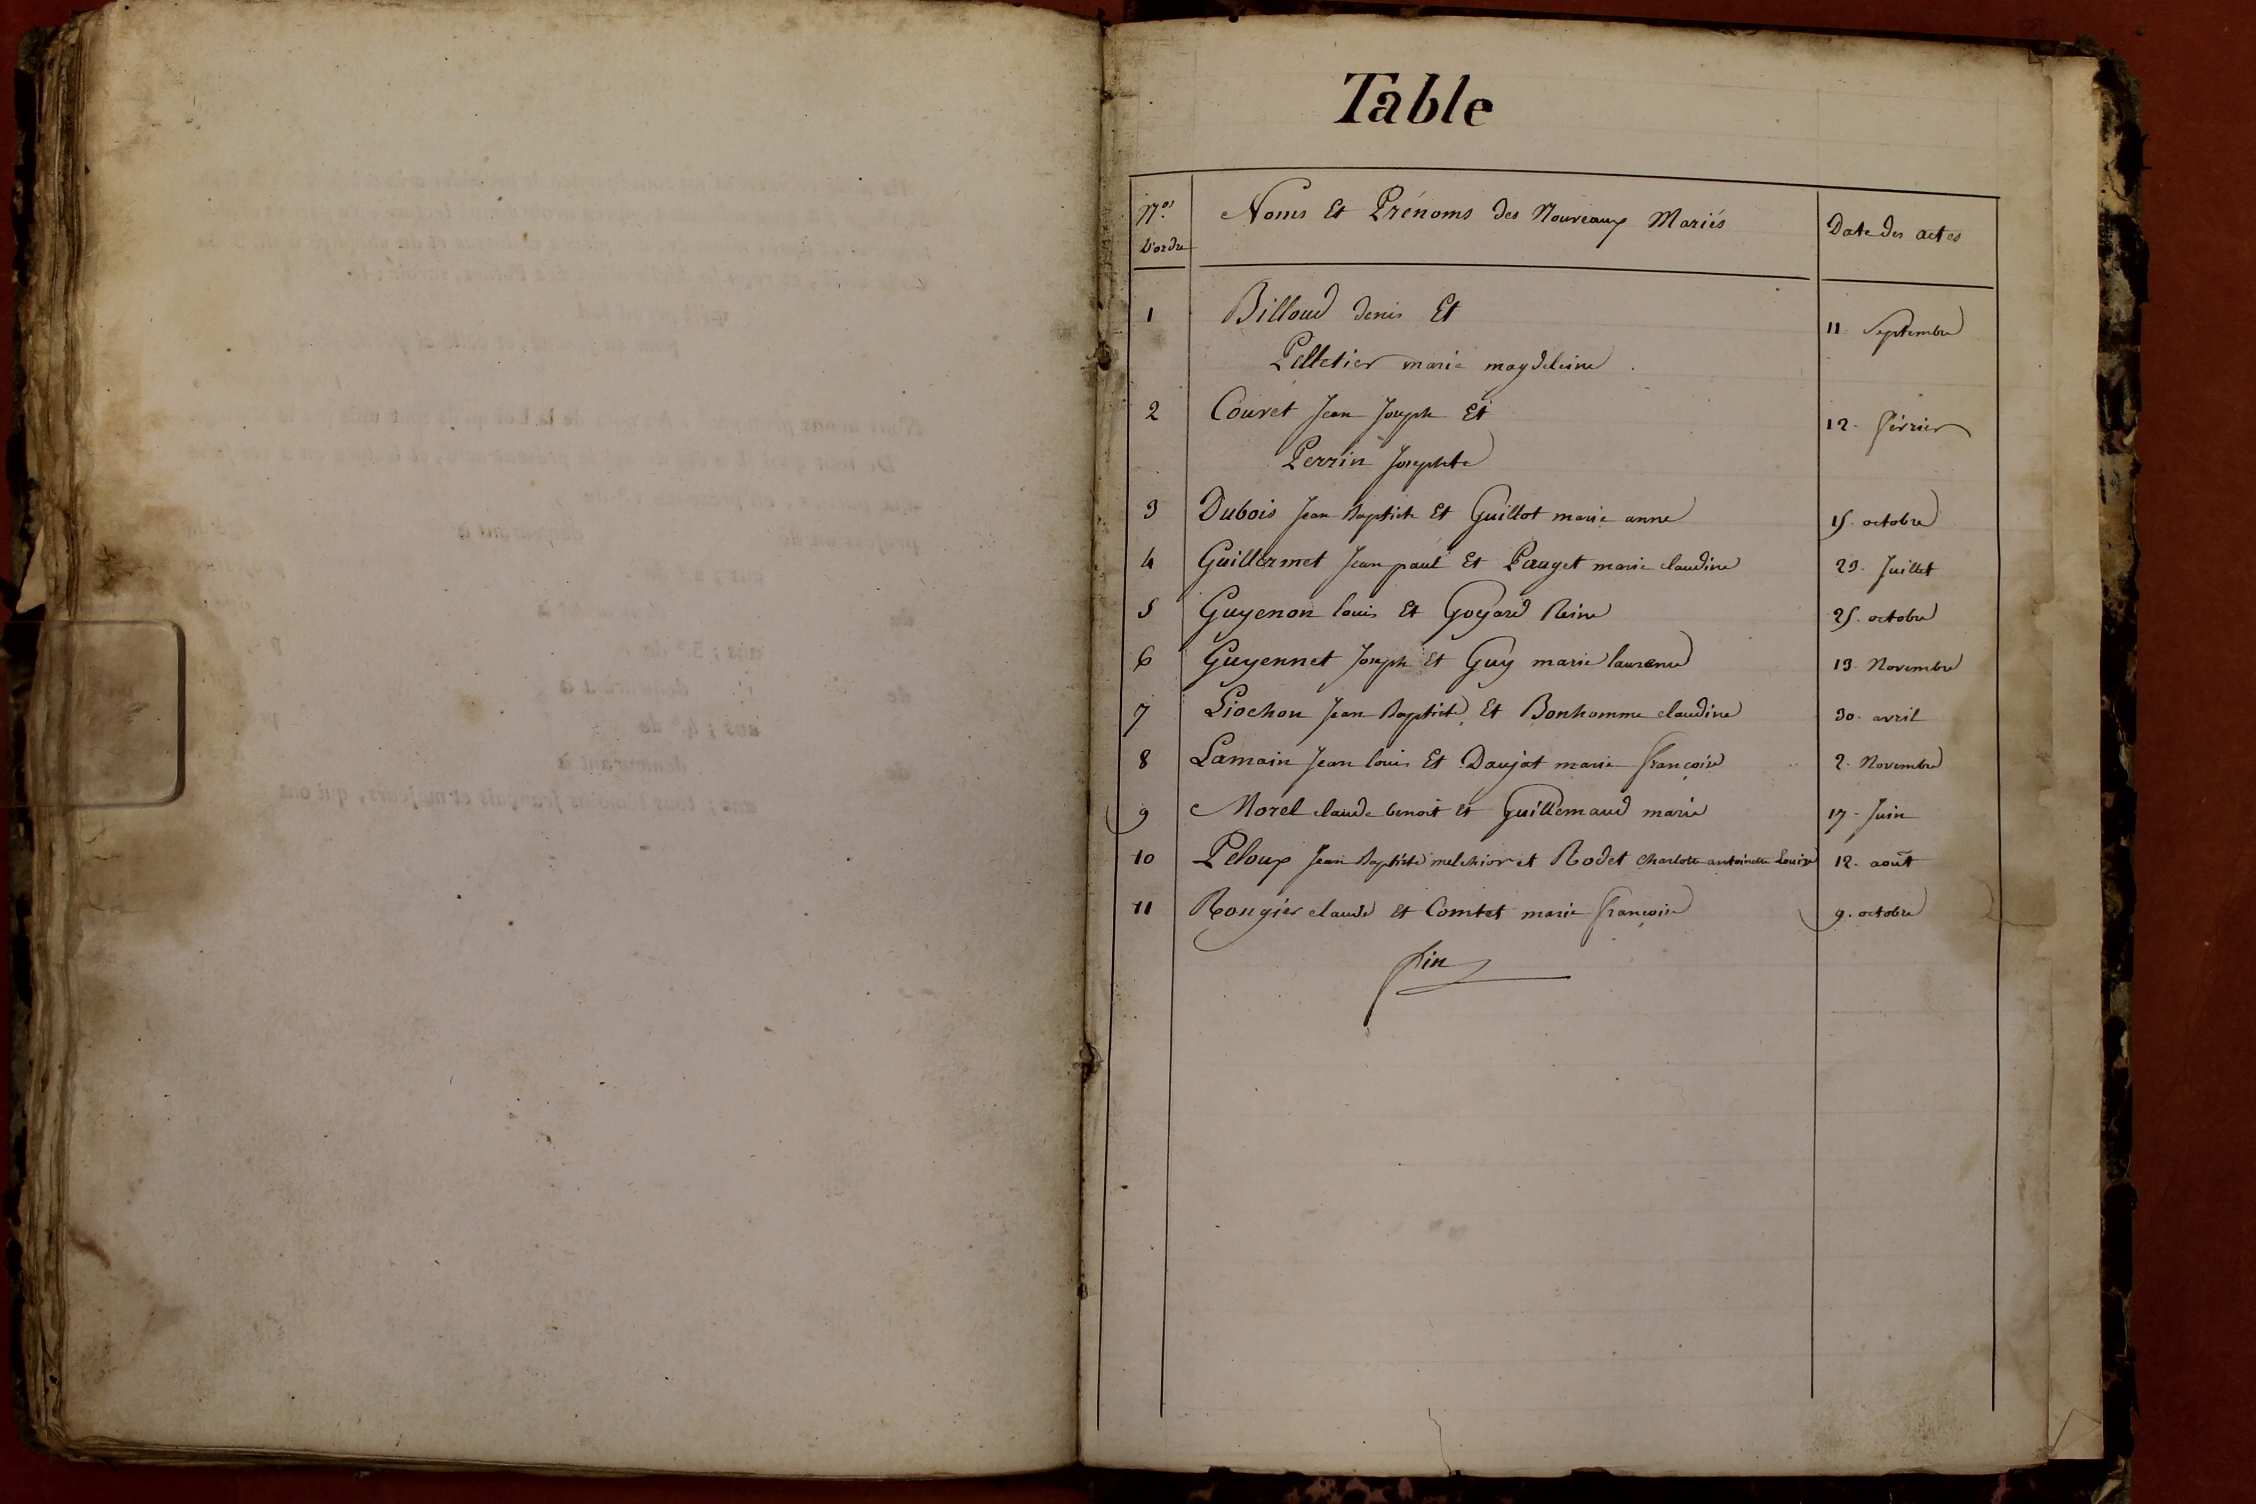 Table
Nos Noms Et Prénoms des Nouveaux Mariés Date des actes
D'ordre
1 Billoud denis Et 11. Septembre
Pelletier marie magdeleine
2 Couret Jean Joseph Et 12. février
Perrin Josephte
3 Dubois Jean Baptiste Et Guillot marie anne 15. octobre
4 Guillermet Jean paul Et Pauget marie claudine 23. Juillet
5 Guyenon louis Et Goyard Reine 25. octobre
6 Guyennet Joseph Et Guy marie laurence 13. Novembre
7 Liochon Jean Baptiste Et Bonhomme claudine 30. avril
8 Lamain Jean louis Et Daujat marie françoise 2. Novembre
9 Morel claude benoit Et Guillemaud marie 17. Juin
10 Peloux Jean Baptiste melchior et Rodet charlotte antoinette Louise 12. août
11 Rougier claude Et Comtet marie françoise 9. octobre
fin